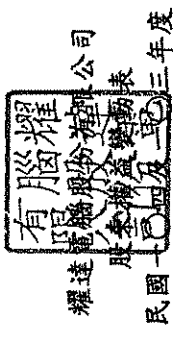 耀達電腦股份有限公司
股東權益變動表
民國一○四及一○三年度